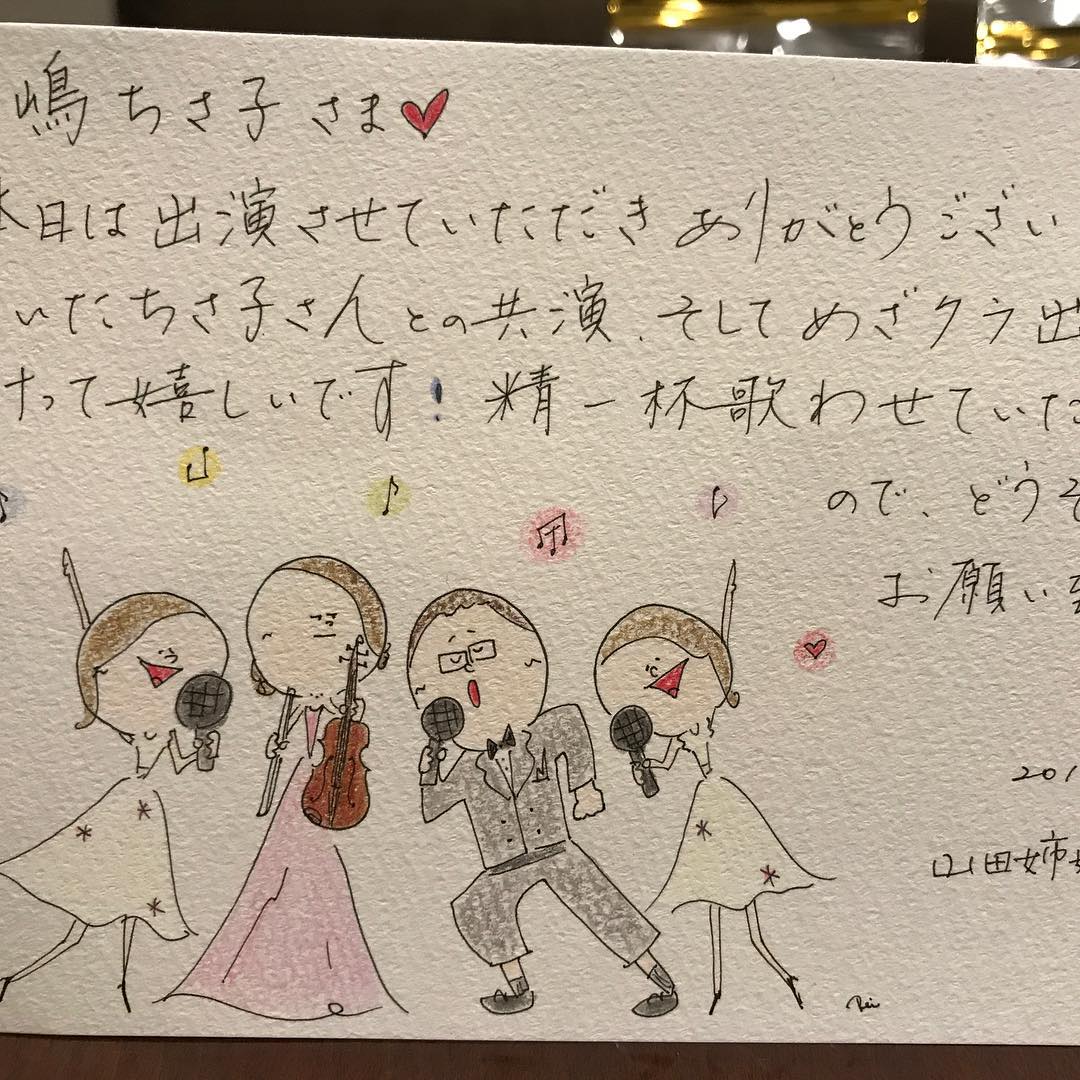 嶋ちさ子さま
本日は出演させていただきありがとうござい
いたちさ子さんとの共演、そしてめざクラ出
って嬉しいです！精一杯歌わせていた
ので、どうぞ
お願い致
201
山田姉妹
Rei